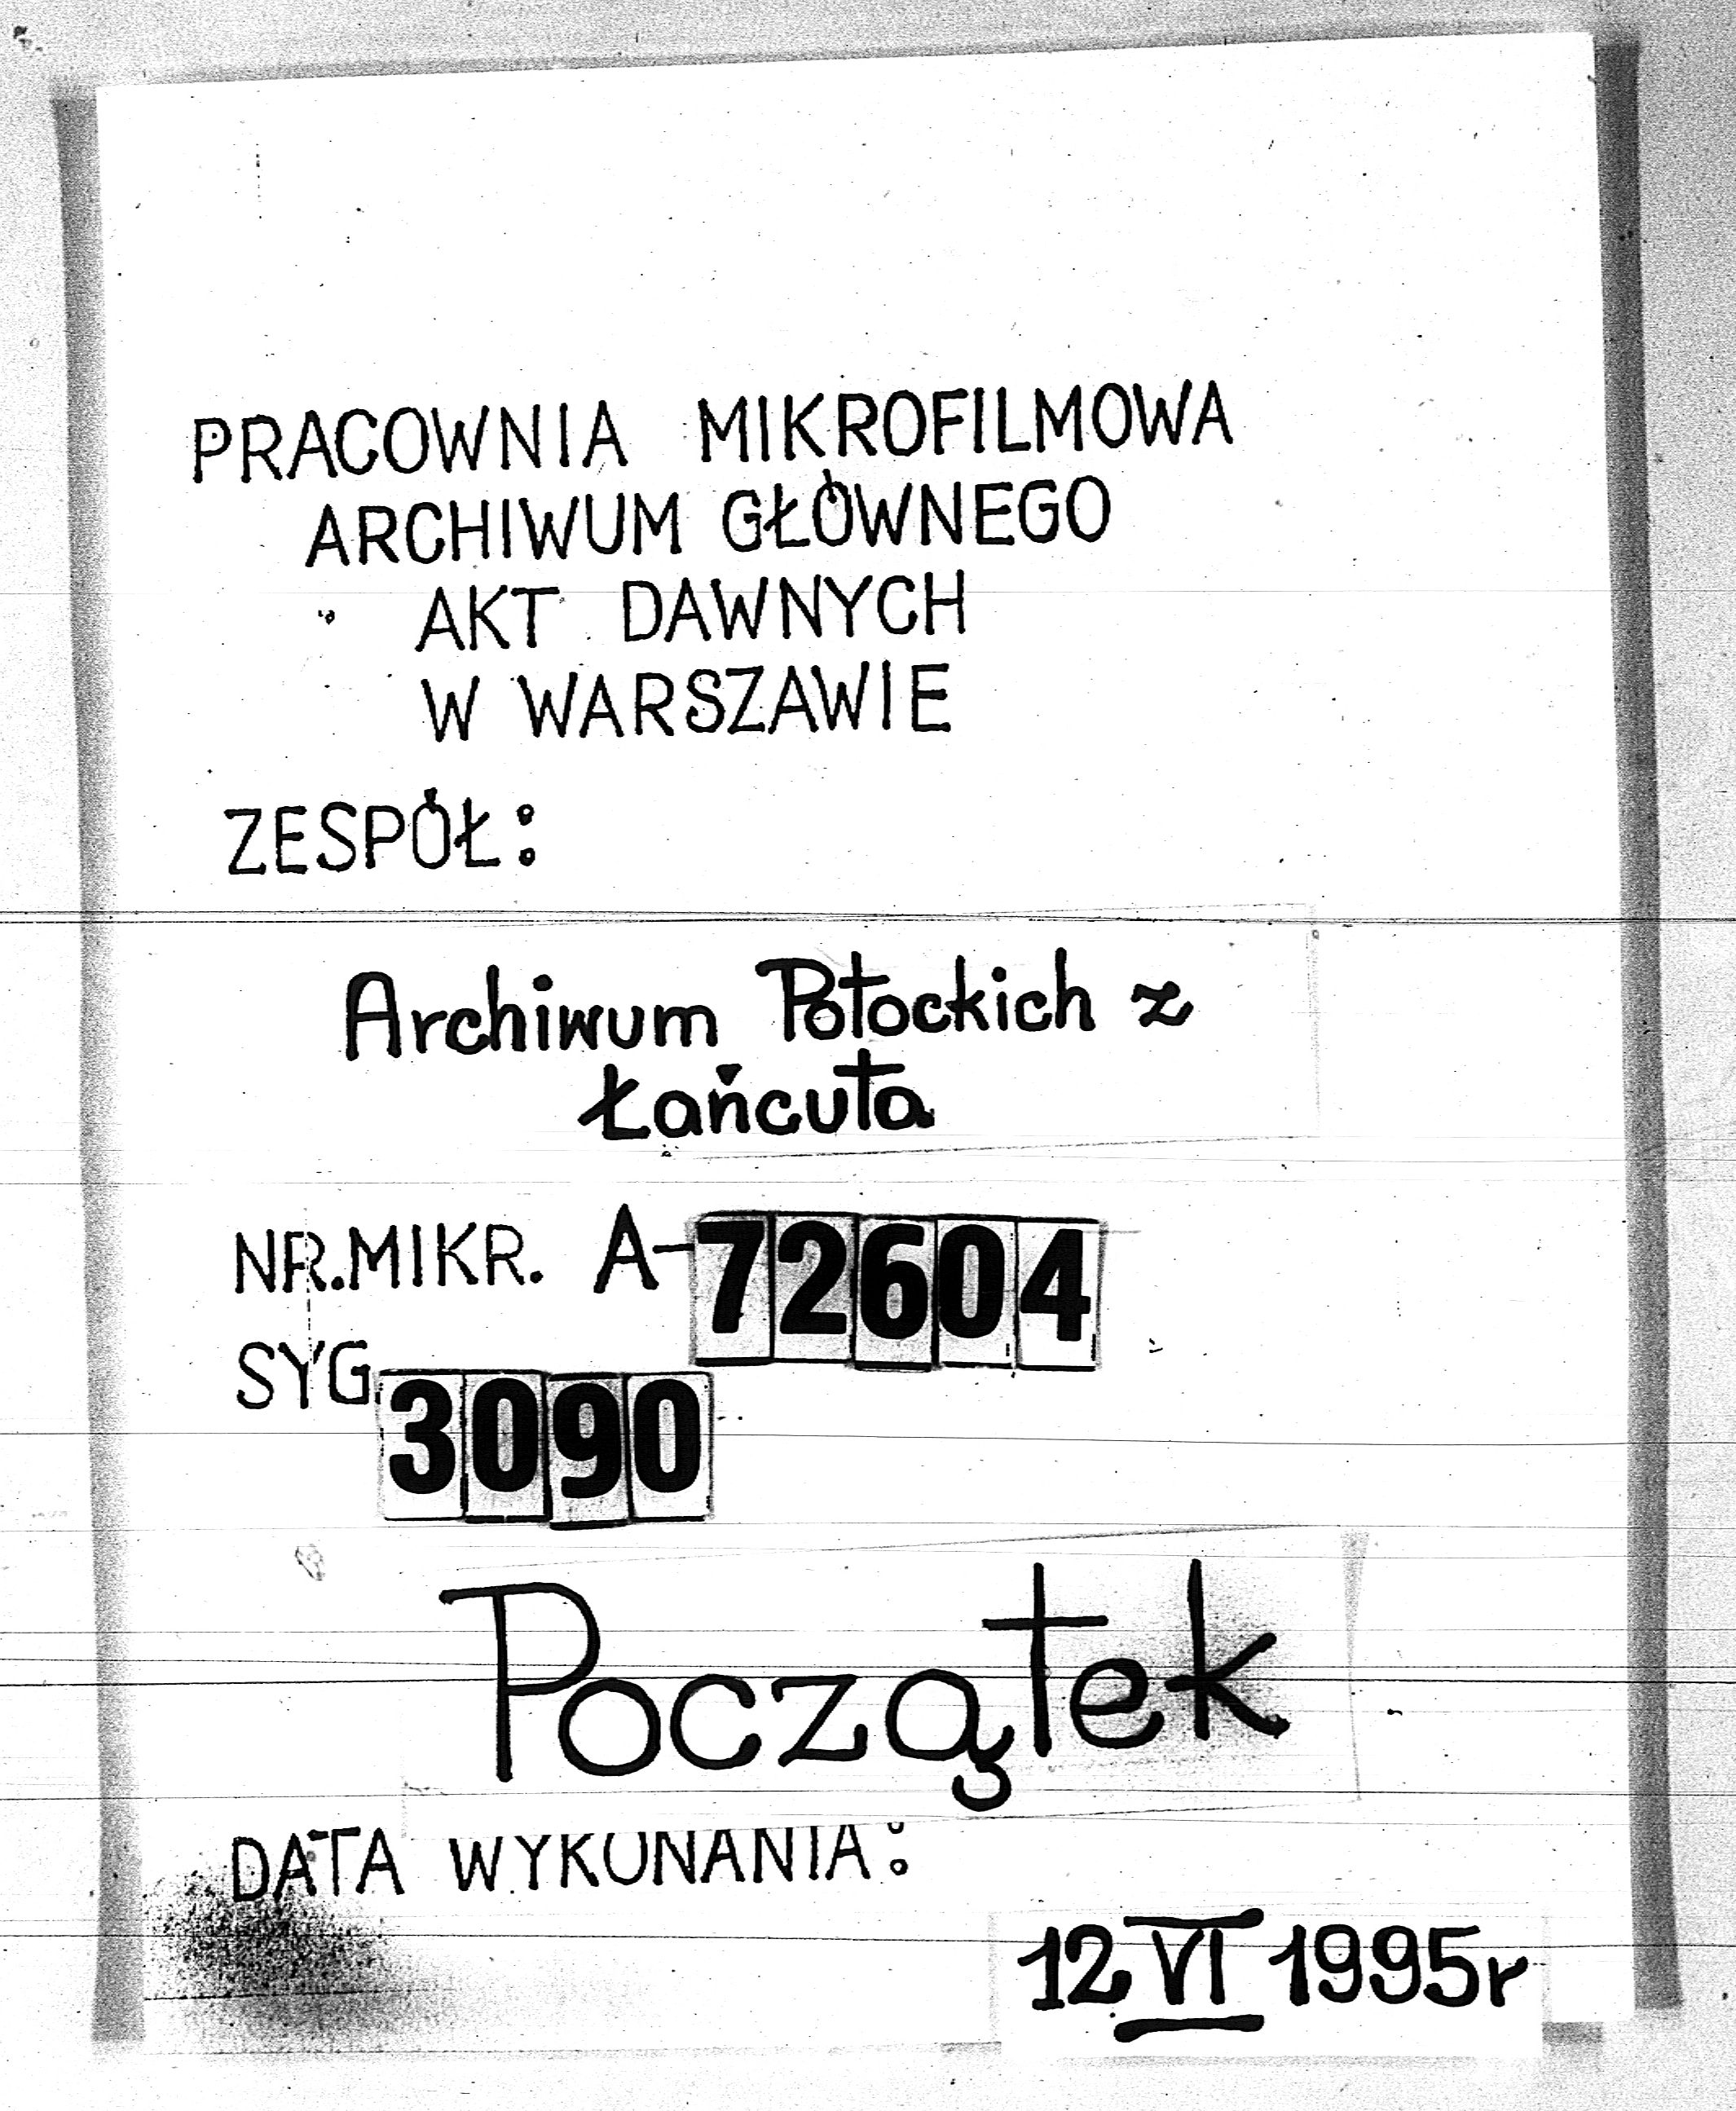 PRACOWNIA MIKROFILMOWA
ARCHIWUM GŁÓWNEGO
AKT DAWNYCH
W WARSZAWIE
ZESPÓŁ:
Archiwum Potockich z
Łańcuta
NR.MIKR. A-72604
SYG. 3090
Początek
DATA WYKONANIA:
12 VI 1995r